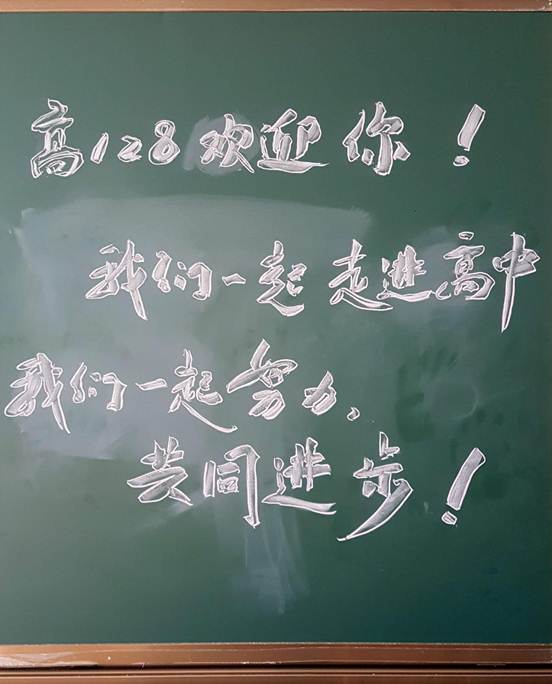 高128欢迎你！
我们一起走进高中
我们一起努力、
共同进步！